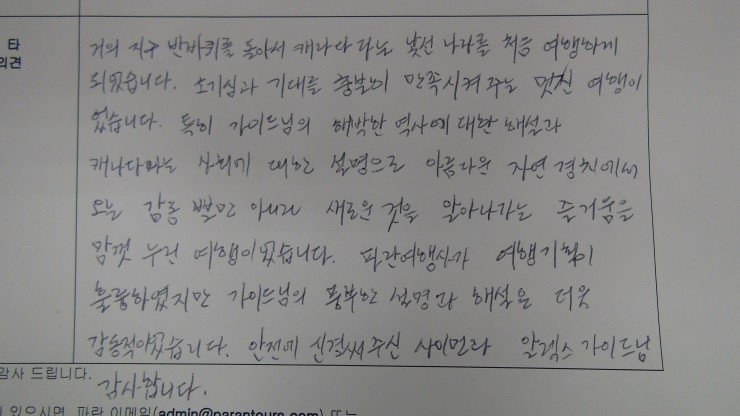 타
의견
거의 지구 반바퀴를 돌아서 캐나다 라는 낯선 나라를 처음 여행하게
되었습니다. 호기심과 기대를 충분히 만족시켜 주는 멋진 여행이
었습니다. 특히 가이드님의 해박한 역사에 대한 해설과
캐나다라는 사회에 대한 설명으로 아름다운 자연 경치에서
오는 감동 뿐만 아니라 새로운 것을 알아나가는 즐거움을
맘껏 누린 여행이었습니다. 파란여행사가 여행기획이
훌륭하였지만 가이드님의 풍부한 설명과 해설은 더욱
감동적이었습니다. 안전에 신경써주신 사이먼과 알렉스 가이드님
감사합니다.
감사 드립니다.
있으시면, 파란 이메일(admin@parantours.com) 또는